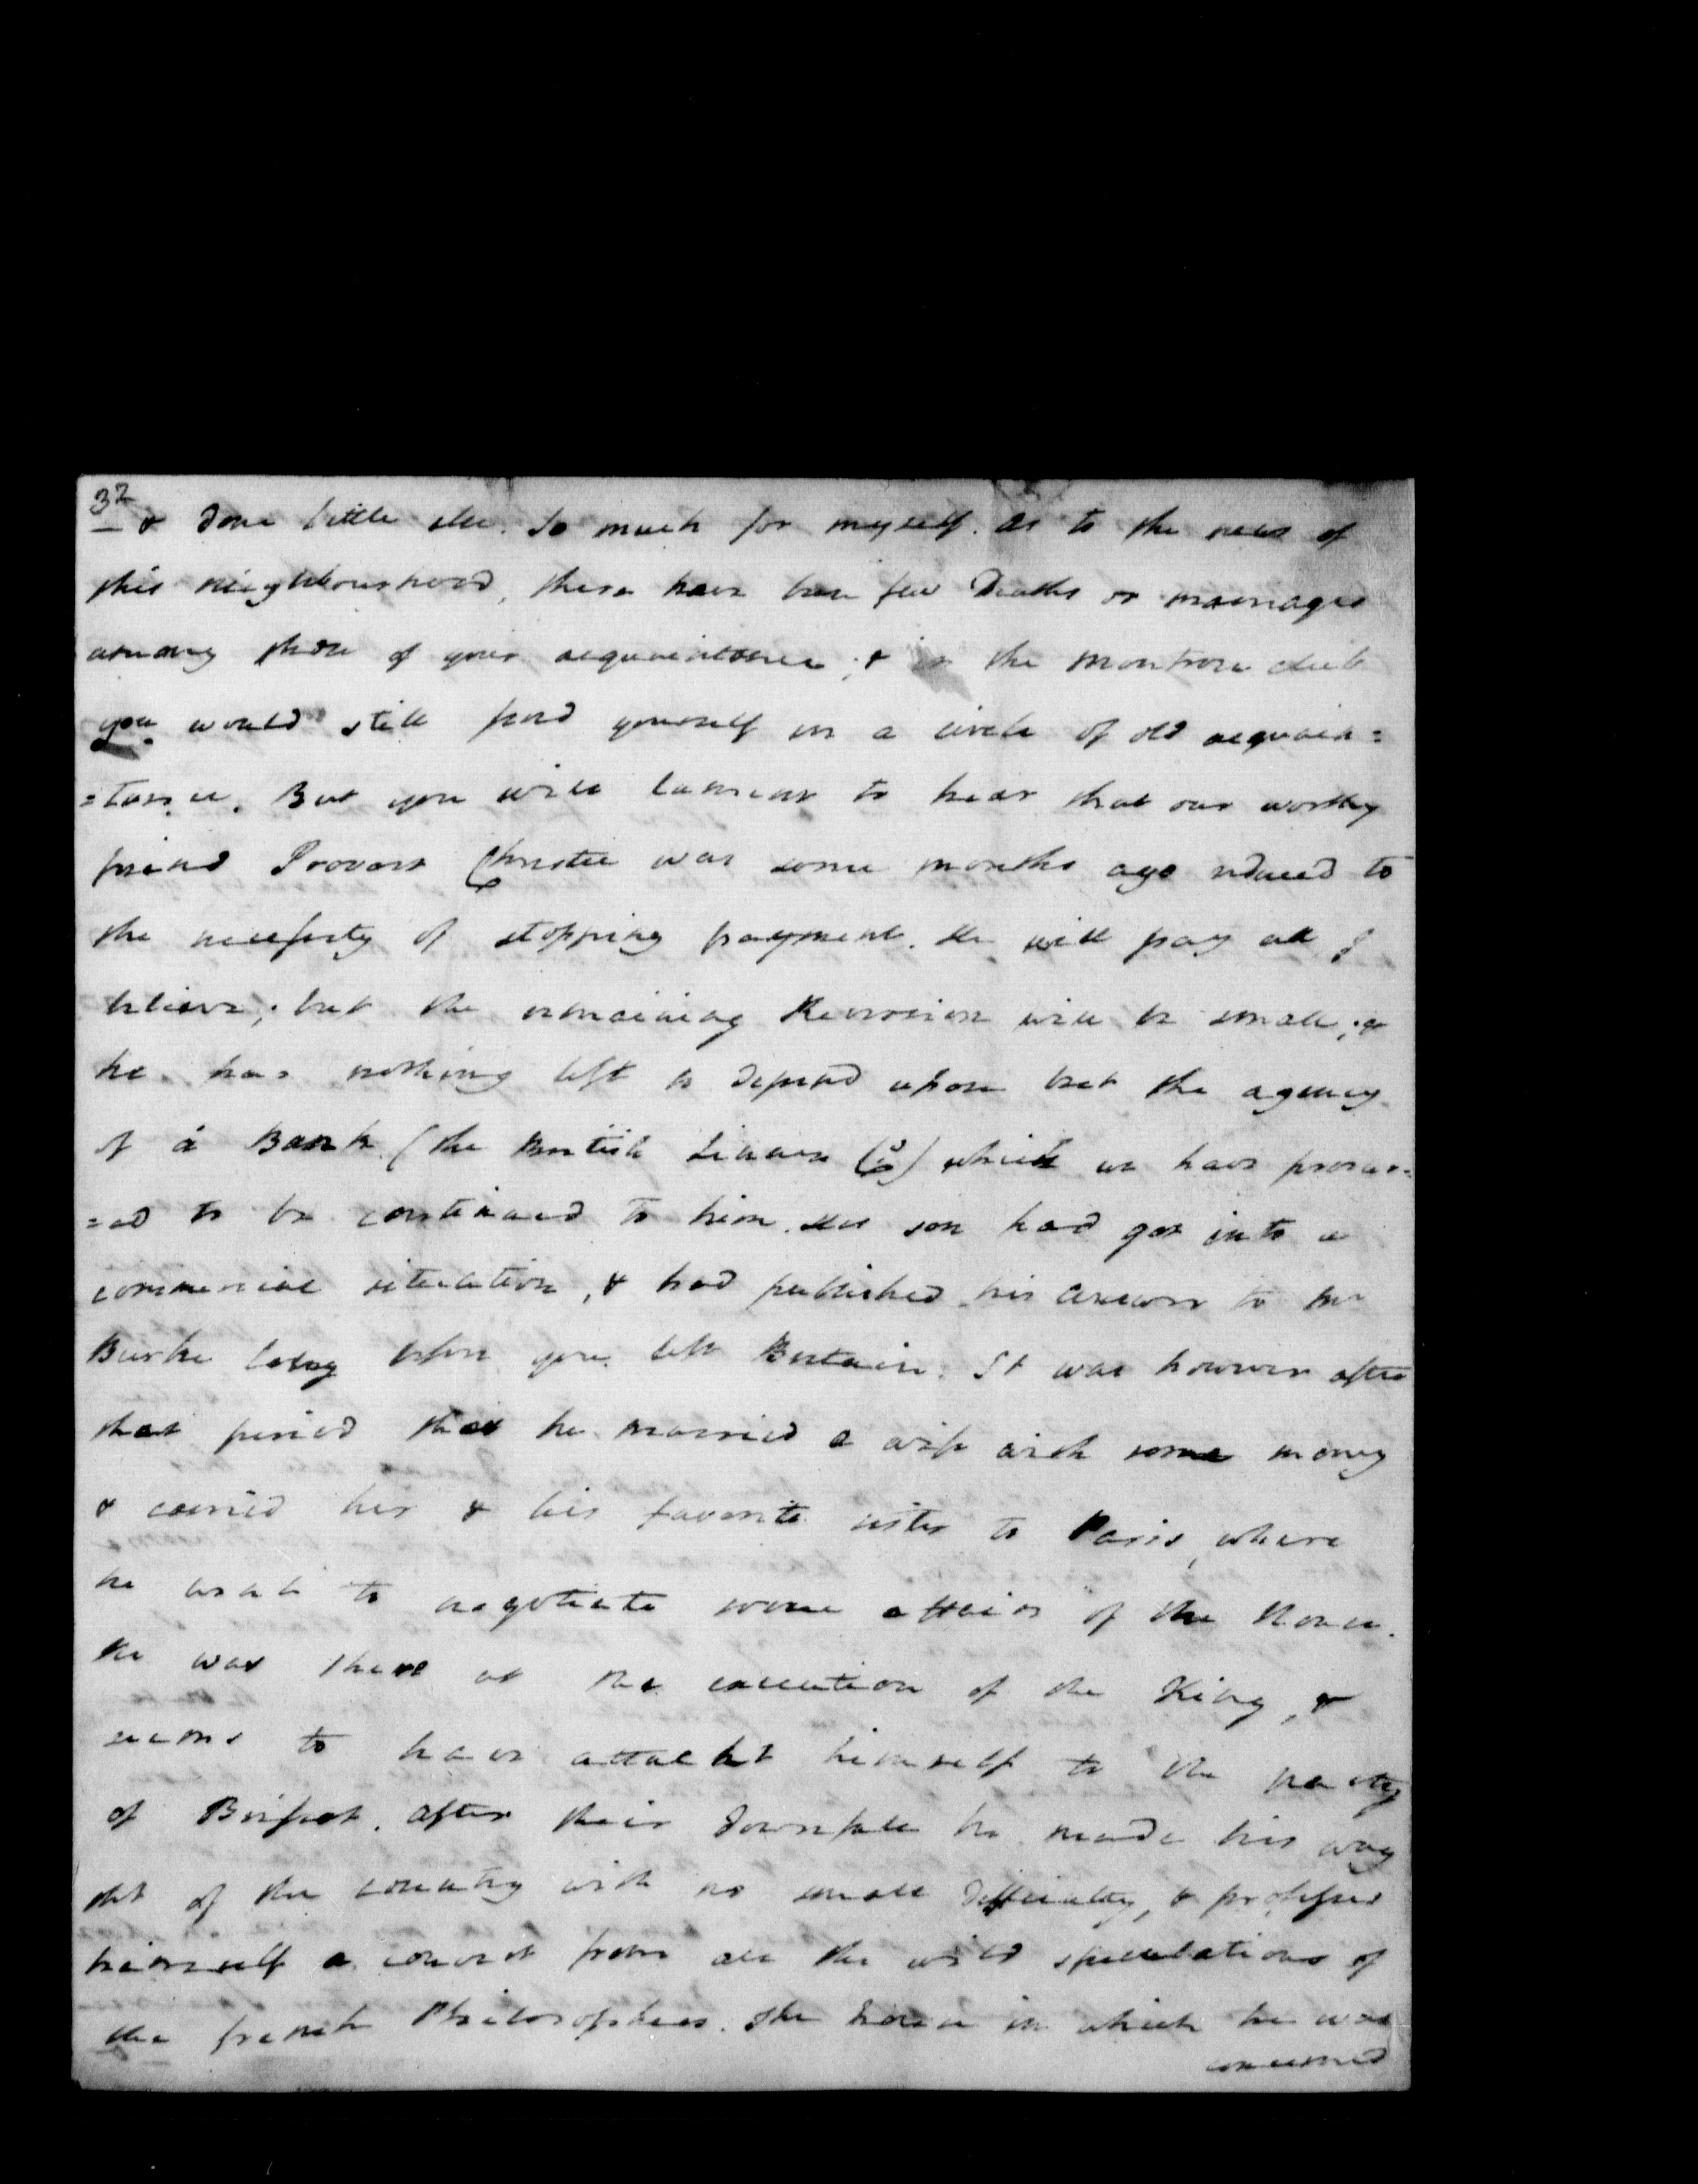 32
& done little else. So much for myself. As to the news of
this neighbourhood, there have been few Deaths or marriages
among those of your acquaintance; & in the Montrose club
you would still find yourself in a circle of old acquain=
=tance. But you will lament to hear that our worthy
friend Provost Christie was some months ago reduced to
the necessity of stopping payment. He will pay all I
believe; but the remaining Reversion will be small; &
he has nothing left to depend upon but the agency
of a Bank (the British Linnen Co) which we have procur=
=ed to be continued to him. His son had got into a
commercial situation, & had published his answer to Mr
Burke long before you left Britain. It was however after
that period that he married a wife with some money
& carried her & his favorite sister to Paris, where
he was to negotiate some affairs of the House.
He was there at the execution of the King, &
seems to have attacht himself to the party
of Brissot. After their downfall he made his way
out of the country with no small Difficulty, & professes
himself a convert from all the wild speculations of
the french Philosophers. The house in which he was
concerned